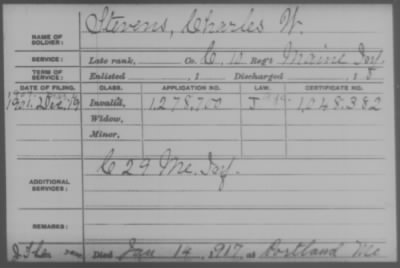 NAME OF SOLDIER: Stevens, Charles W.
SERVICE: Late rank, Co. C, 10 Reg't Maine Inf.
TERM OF SERVICE: Enlisted , 1 Discharged , 1
DATE OF FILING. CLASS. APPLICATION NO. LAW. CERTIFICATE NO.
1901. Dec. 19 Invalid, 1,278,700 J 1,048,382
Widow,
Minor,
ADDITIONAL SERVICES: C 29 Me. Inf.
REMARKS:
Died Jan 14, 1917, at Portland Me